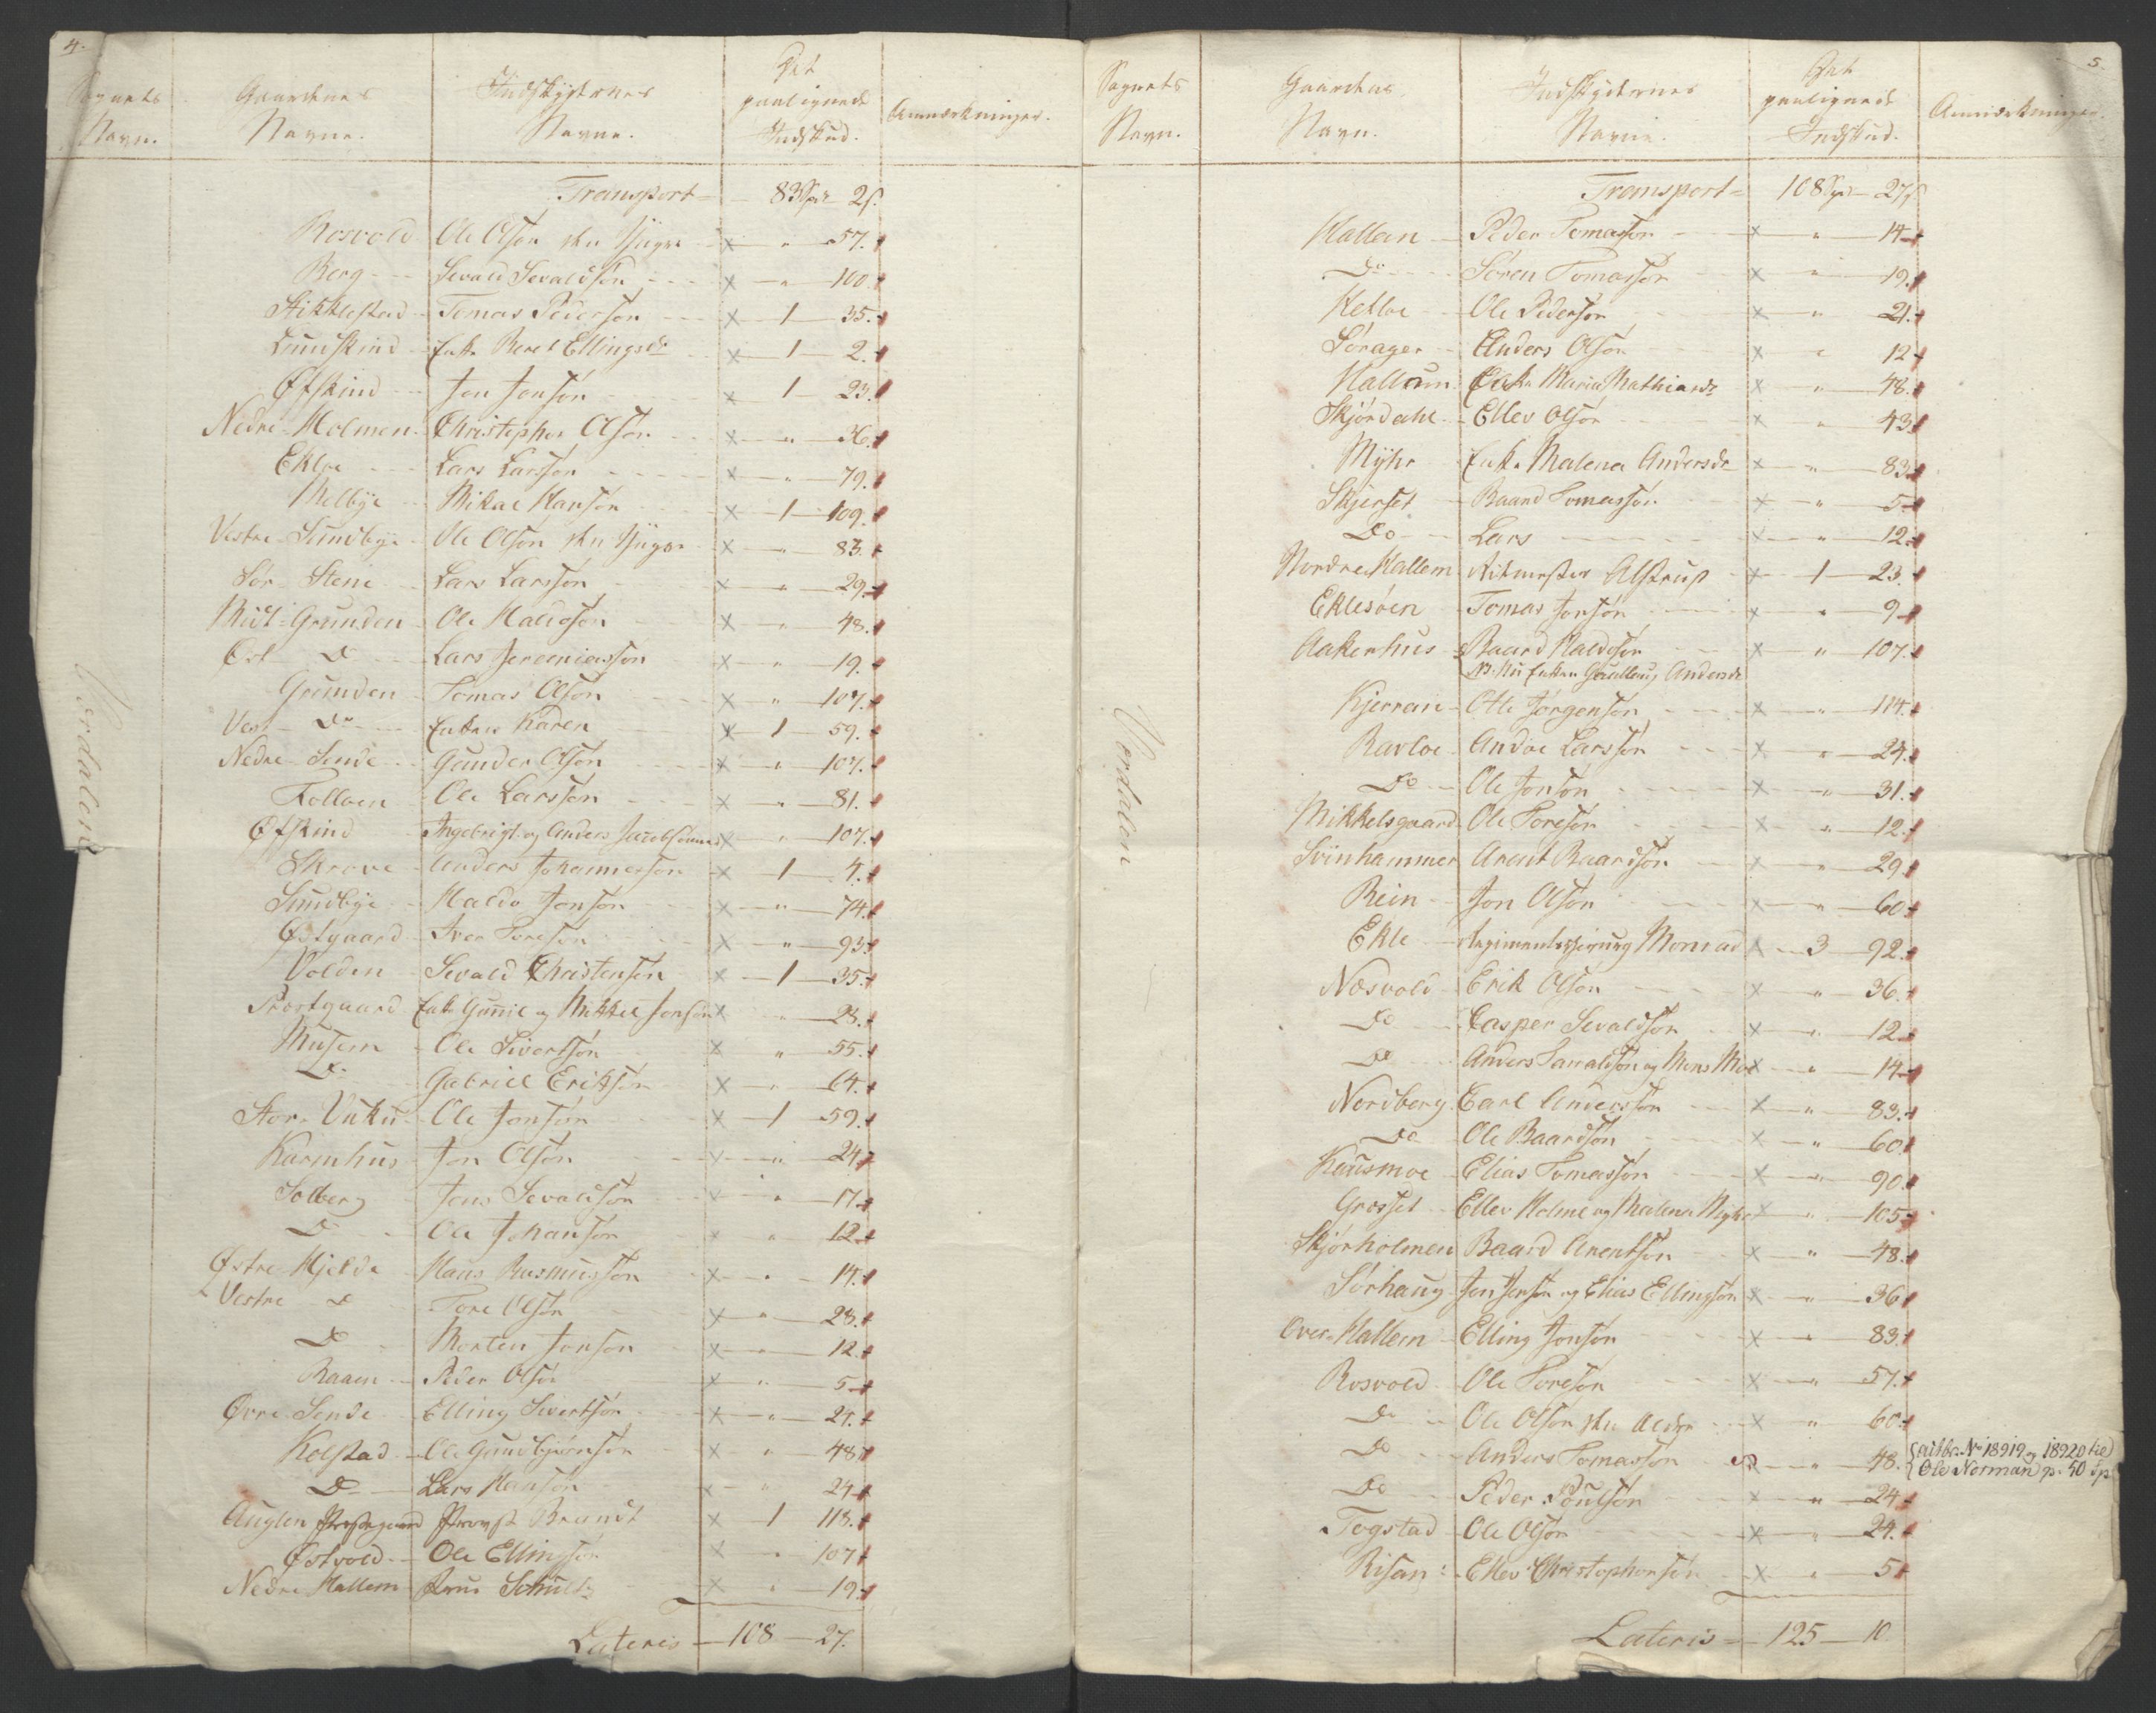 4.
Sognets Navn. Gaardenes Navne. Indskydernes Navne. Det paalignede Indskud. Anmærkninger.
Værdalen
Transport = 83 Spd 2 s.
Rosvold Ole Olsøn den Yngre x " 57.
Berg Sevald Sevaldsøn x " 100.
Stiklestad Tomas Pedersøn x 1 35.
Lundskind Enke Beret Ellingsdr x 1 2.
Øfskind Jon Jonsøn x 1 23.
Nedre Holmen Christopher Olsøn x " 36.
Ekloe Lars Larssøn x " 79.
Melbye Mikal Hansøn x 1 109.
Vestre Sundbye Ole Olsøn den Yngre x " 83.
Sør Stene Lars Larssøn x " 29.
Mid Grunden Ole Haldosøn x " 48.
Øst Do Lars Jeremiassøn x " 19.
Grunden Tomas Olsøn x " 107.
Vest Do Enken Karen x 1 59.
Nedre Sende Gunder Olsøn x " 107.
Folloen Ole Larssøn x " 81.
Øfskind Ingebrigt og Anders Jacobsønner x " 107.
Skrove Anders Johannessøn x 1 4.
Sundbye Haldo Jonsøn x " 74.
Østgaard Iver Toresøn x " 93.
Volden Sevald Christensøn x 1 35.
Prostgaard Enke Gunnil og Mikkel Jonsøn x " 23.
Musem Ole Sivertsøn x " 55.
Do Gabriel Eriksøn x " 64.
Stor Vuku Ole Jonsøn x 1 59.
Karmhus Jon Olsøn x " 24.
Solberg Jens Sevaldsøn x " 17.
Do Ole Johansøn x " 12.
Østre Hjelde Hans Rasmussøn x " 14.
Vestre Do Tore Olsøn x " 23.
Do Morten Jonsøn x " 12.
Raaen Peder Olsøn x " 5.
Øvre Sende Elling Sivertsøn x " 24.
Kolstad Ole Gundbjørnsøn x " 48.
Do Lars Hansøn x " 24.
Auglen Prestegaard Provst Brandt x 1 118.
Østvold Ole Ellingsøn x " 107.
Nedre Hallem Jens Schultz x " 19.
Lateris 108 27.
5.
Sognets Navn. Gaardenes Navn. Indskydernes Navne. Det paalignede Indskud. Anmærkninger.
Værdalen
Transport = 108 Spd 27 s.
Hallan Peder Tomassøn x " 14
Do Søren Tomassøn x " 19.
Ketloe Ole Pedersøn x " 21.
Sørager Anders Olsøn x " 12
Hallum Enke Maria Mathiasdr x " 48.
Skjørdahl Ellev Olsøn x " 43.
Myhr Enke Malena Andersdr x " 83.
Skjerset Baard Tomassøn x " 5
Do Lars x " 12.
Nordre Hallem Ritmester Alstrup x 1 23.
Eklesøen Tomas Jonsøn x " 9
Aakerhus Baard Haldosøn x " 107.
NB. Nu Enken Gunlaug Andersdr
Kjerran Otte Jørgensøn x " 114.
Ravloe Andoe Larssøn x " 24.
Do Ole Jonsøn x " 31.
Mikkelsgaard Ole Toresøn x " 12.
Svinhammer Arent Baardsøn x " 29.
Rein Jon Olsøn x " 60
Ekle Regimentschirurg Monrad x 3 92.
Næsvold Erik Olsøn x " 36.
Do Casper Sevaldsøn x " 12.
Do Anders Haraldsøn og Mons Moe x " 14
Nordberg Carl Anderssøn x " 83.
Do Ole Baardsøn x " 60.
Kausmoe Elias Tomassøn x " 90.
Græsset Ellev Holme og Malena Myhr x " 105
Skjørholmen Baard Arentsøn x " 48.
Sørhaug Jon Jensøn og Elias Ellingsøn x " 36
Over Hallem Elling Jonsøn x " 83.
Rosvold Ole Toresøn x " 57.
Do Ole Olsøn den Ældre x " 60.
Do Anders Tomassøn " 48. No 18919 og 18920 til Ole Norman 40 sp
Do Peder Poulsøn " 24
Togstad Ole Olsøn x " 24.
Risan Ellev Christophersøn x " 5
Lateris = 125 10